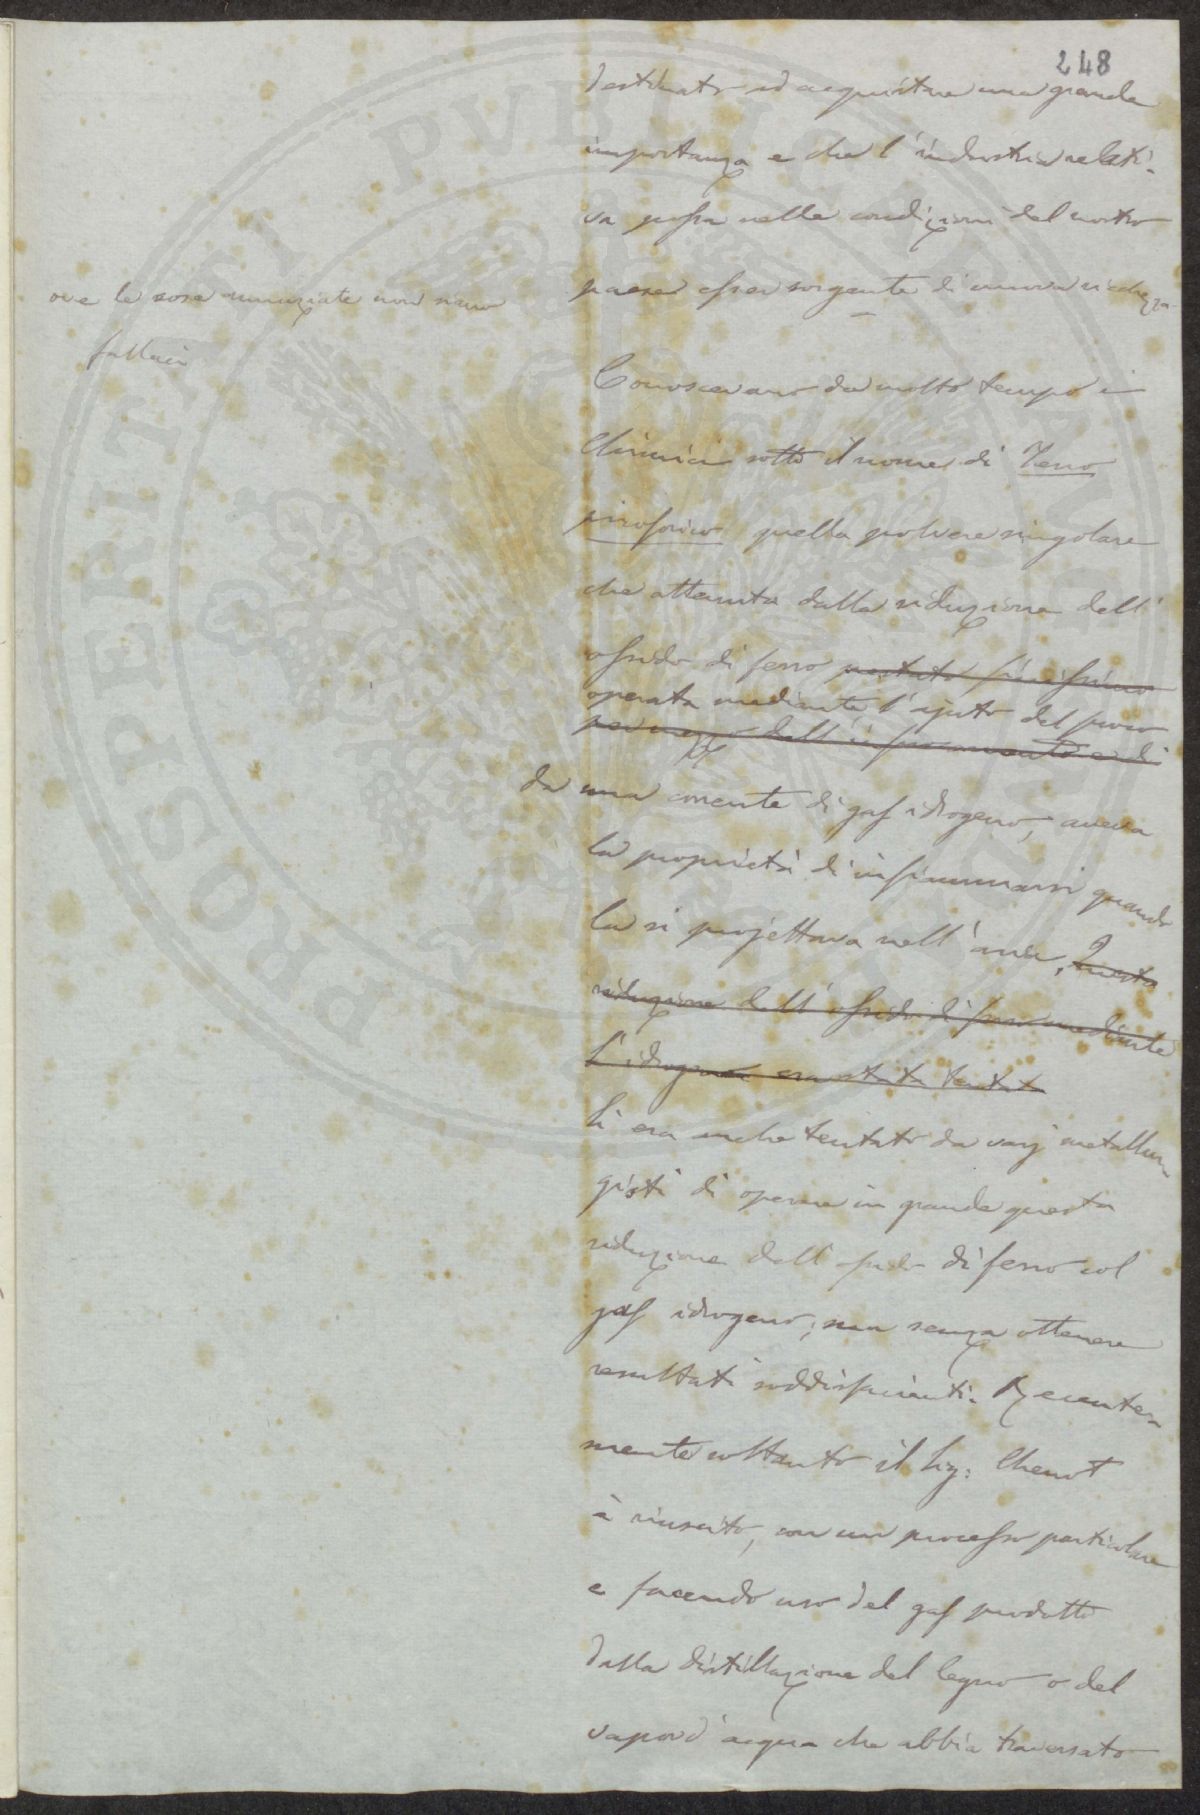 248
destinato ad acquistare una grande
importanza e che l'industria relati-
va possa nelle condizioni del nostro
paese esser sorgente di nuova ricchezza
ove le cose annunziate non siano
fallaci
Conoscevano da molto tempo i
Chimici sotto il nome di Ferro
piroforico quella polvere singolare
che ottenuta dalla riduzione dell'
ossido di ferro portato finissimo
operata mediante l'ajuto del fuoco
per mezzo dell' infuocamento e di
da una corrente di gas idrogeno, aveva
la proprietà di infiammarsi quando
la si projettava nell'aria, Questa
riduzione dell'ossido di ferro mediante
l'idrogeno era stata tentata
Si era anche tentato da varj metallur-
gisti di operare in grande questa
riduzione dell'ossido di ferro col
gas idrogeno; ma senza ottenere
resultati soddisfacienti. Recente-
mente soltanto il Sig: Chenot
è riuscito, con un processo particolare
e facendo uso del gas prodotto
dalla distillazione del legno o del
vapor d'acqua che abbia traversato
PROSPERITATI PVBLICAE